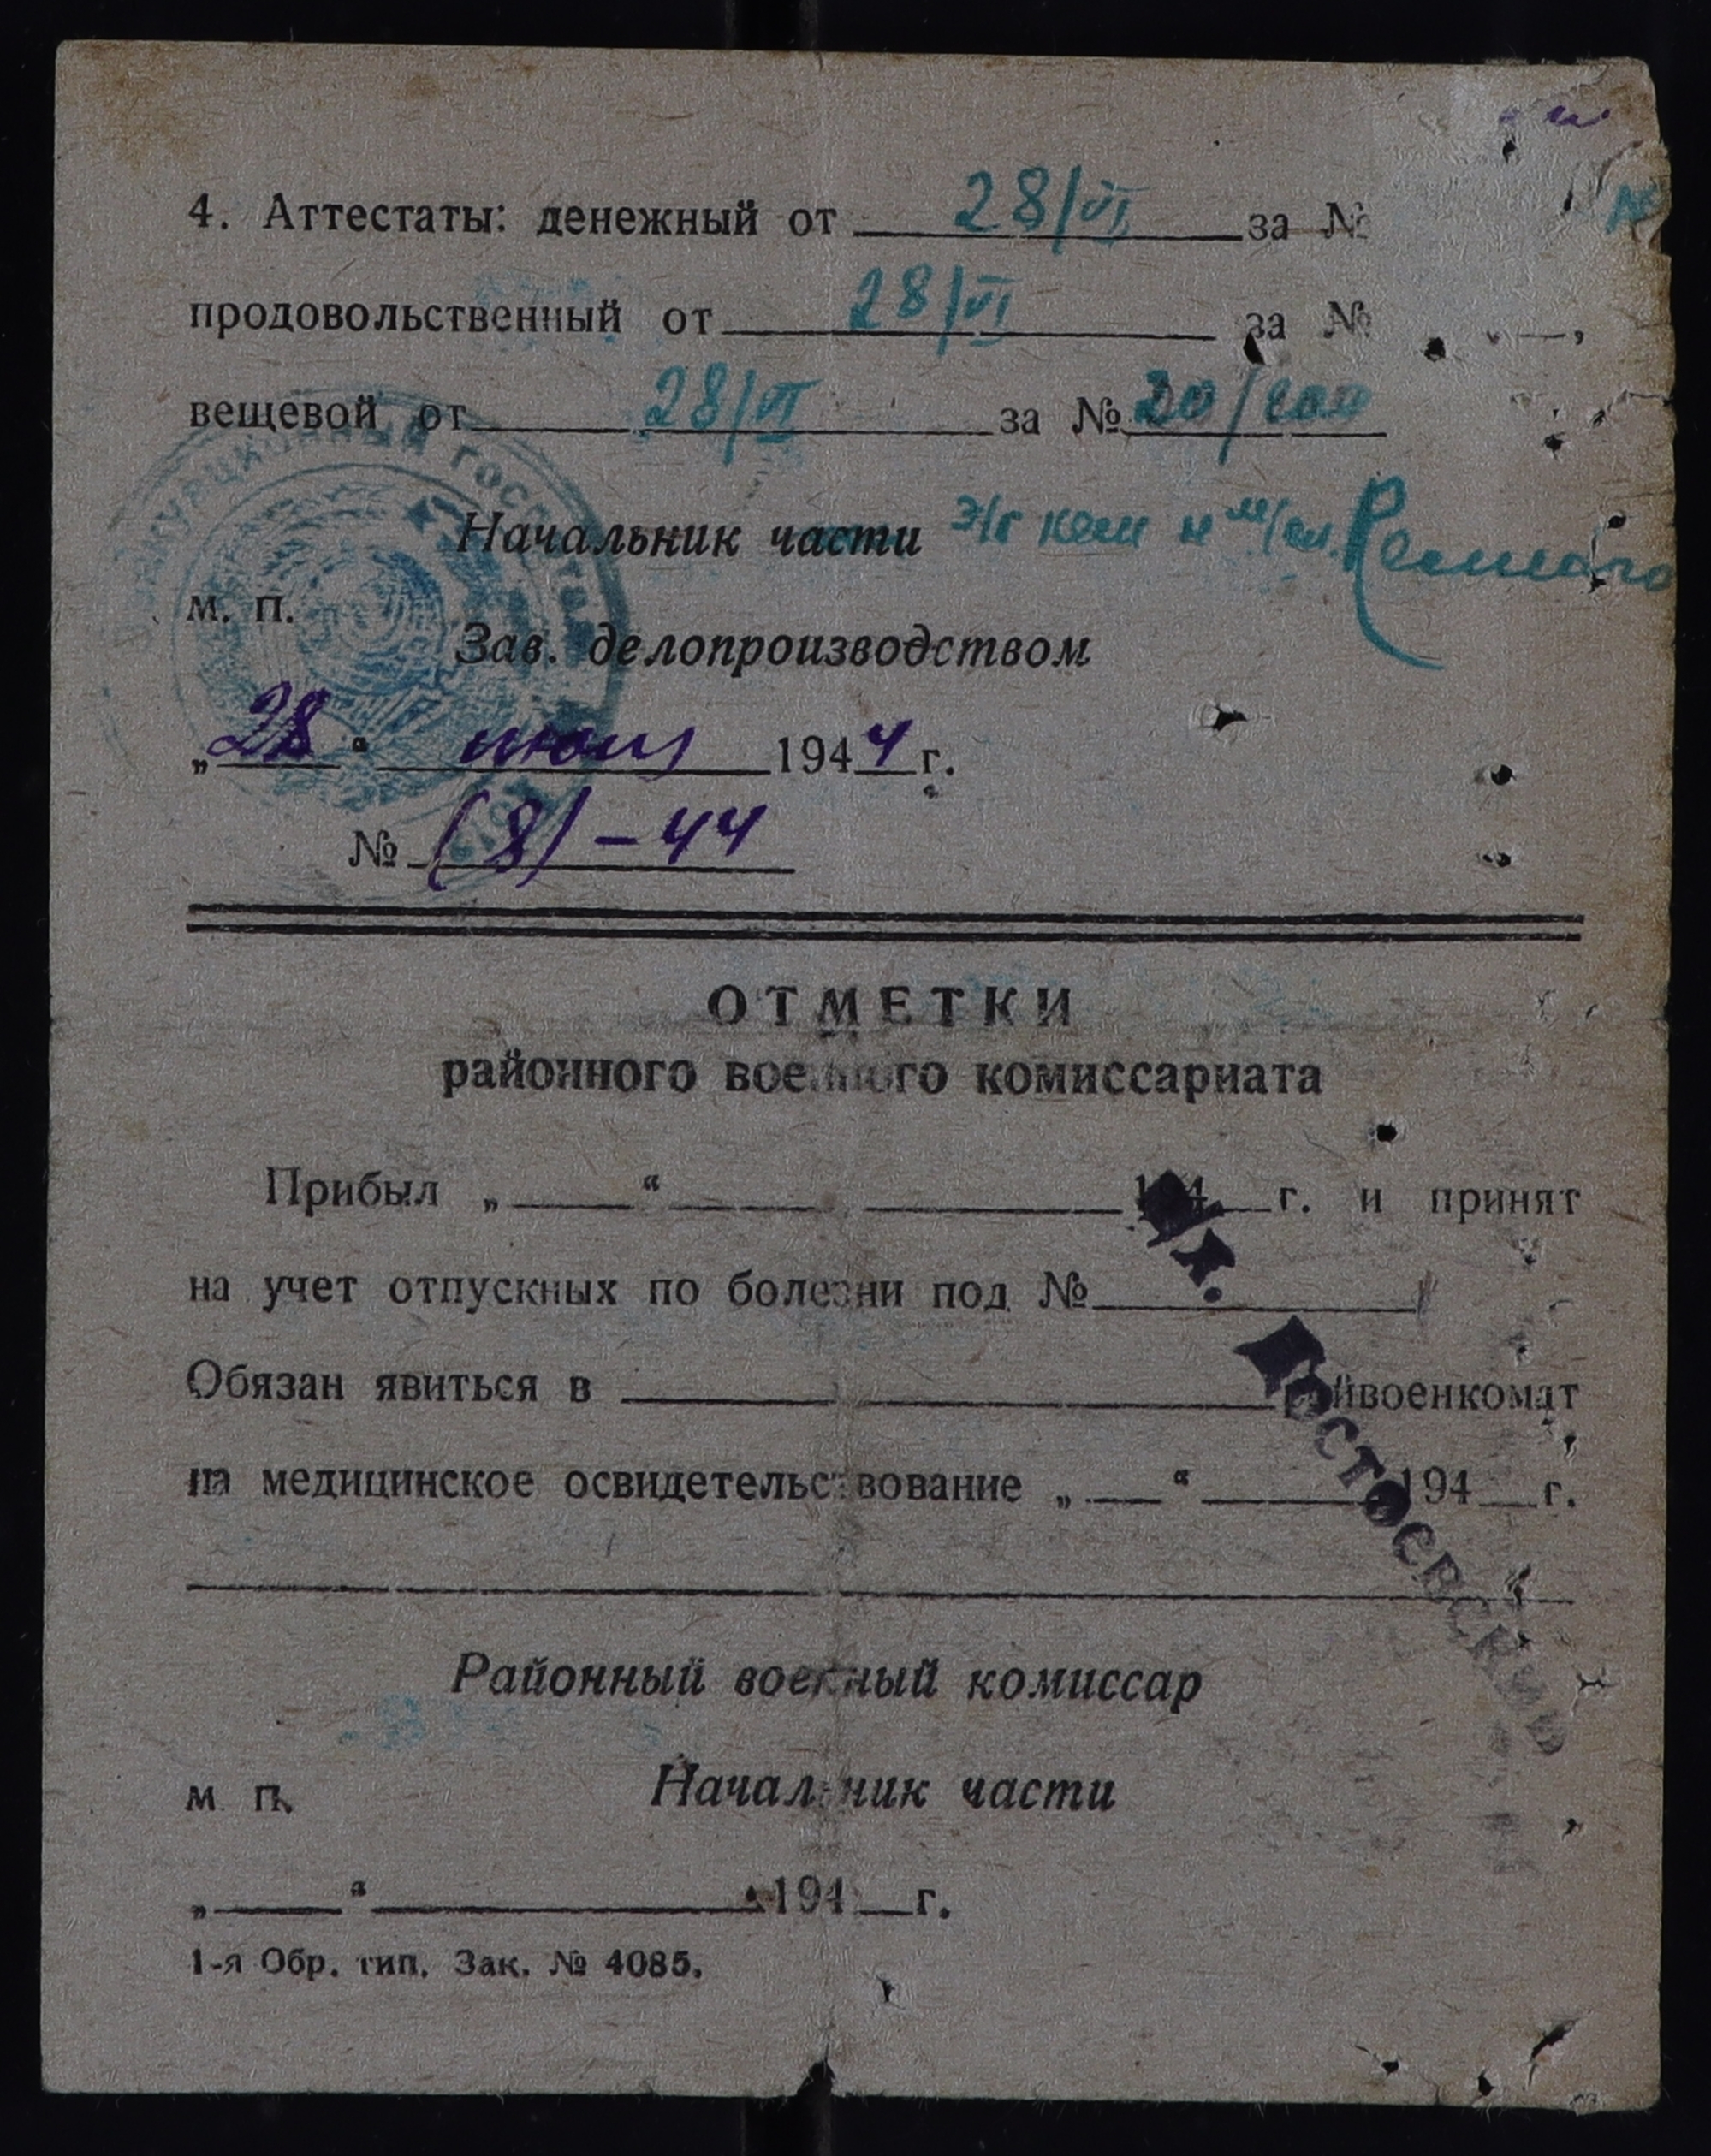 4. Аттестаты: денежный от 28/VI за №
продовольственный от 28/VI за № ,
вещевой от 28/VI за № 20/
Начальник части
М. П.
Зав. делопроизводством
„28“ июня 1944 г.
№ (8)-44
госпиталь
ОТМЕТКИ
районного военного комиссариата
Прибыл „ “ 194 г. и принят
на учет отпускных по болезни под №
Обязан явиться в йвоенкомат
на медицинское освидетельствование „ “ 194 г.
Ростовский
Районный военный комиссар
М. П.
Начальник части
„ “ 194 г.
1-я Обр. тип. Зак. № 4085.